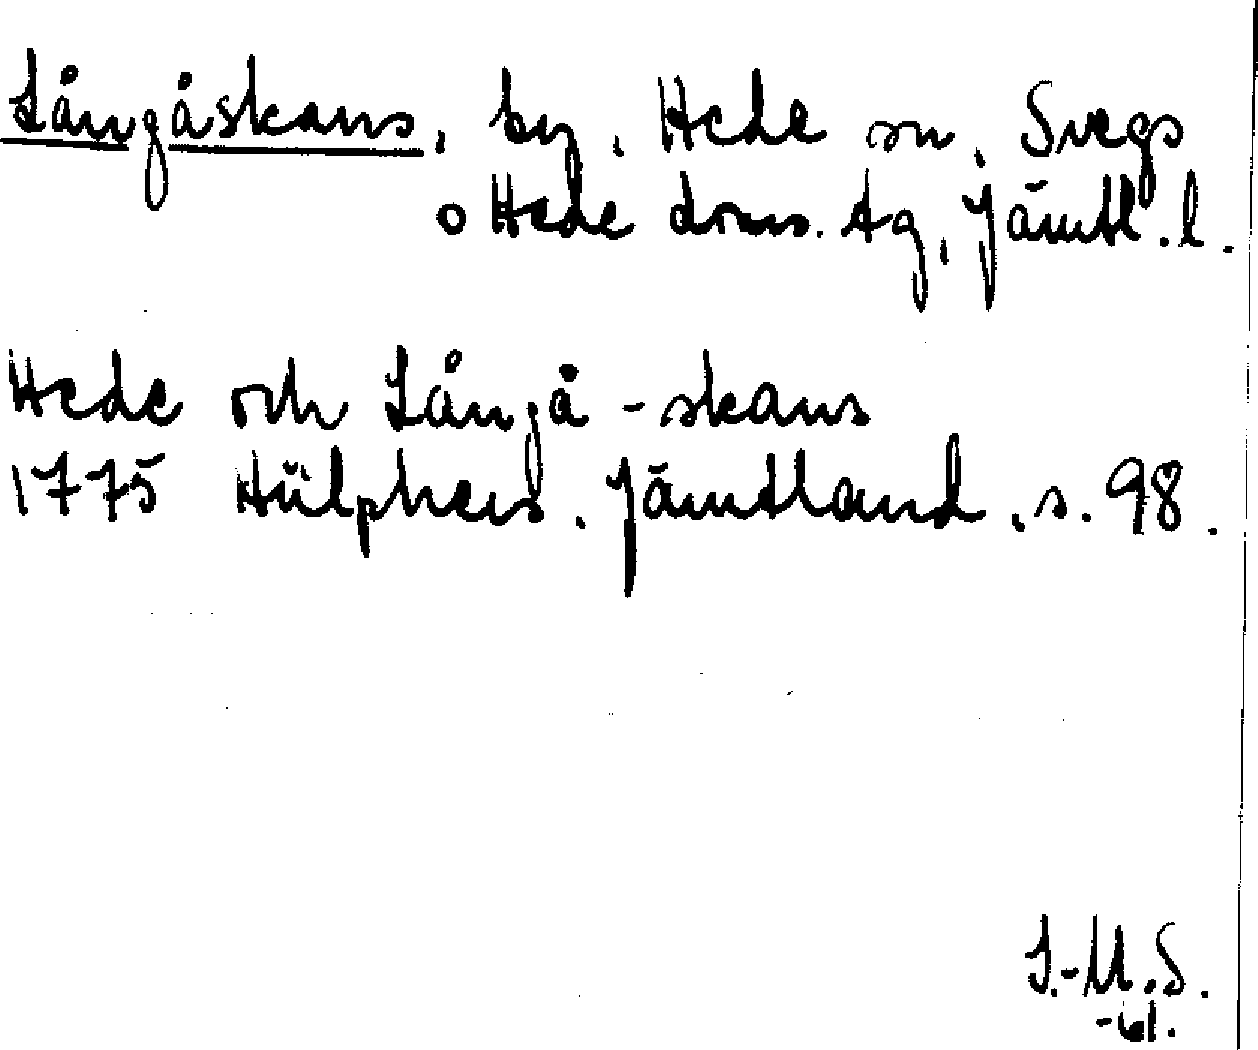 Långåskans, by, Hede sn, Svegs
o Hede doms. tg, Jämtl. l.
Hede och Långå-skans
1775 Hülphers, Jämtland, s. 98.
I.-M.S.
-61.